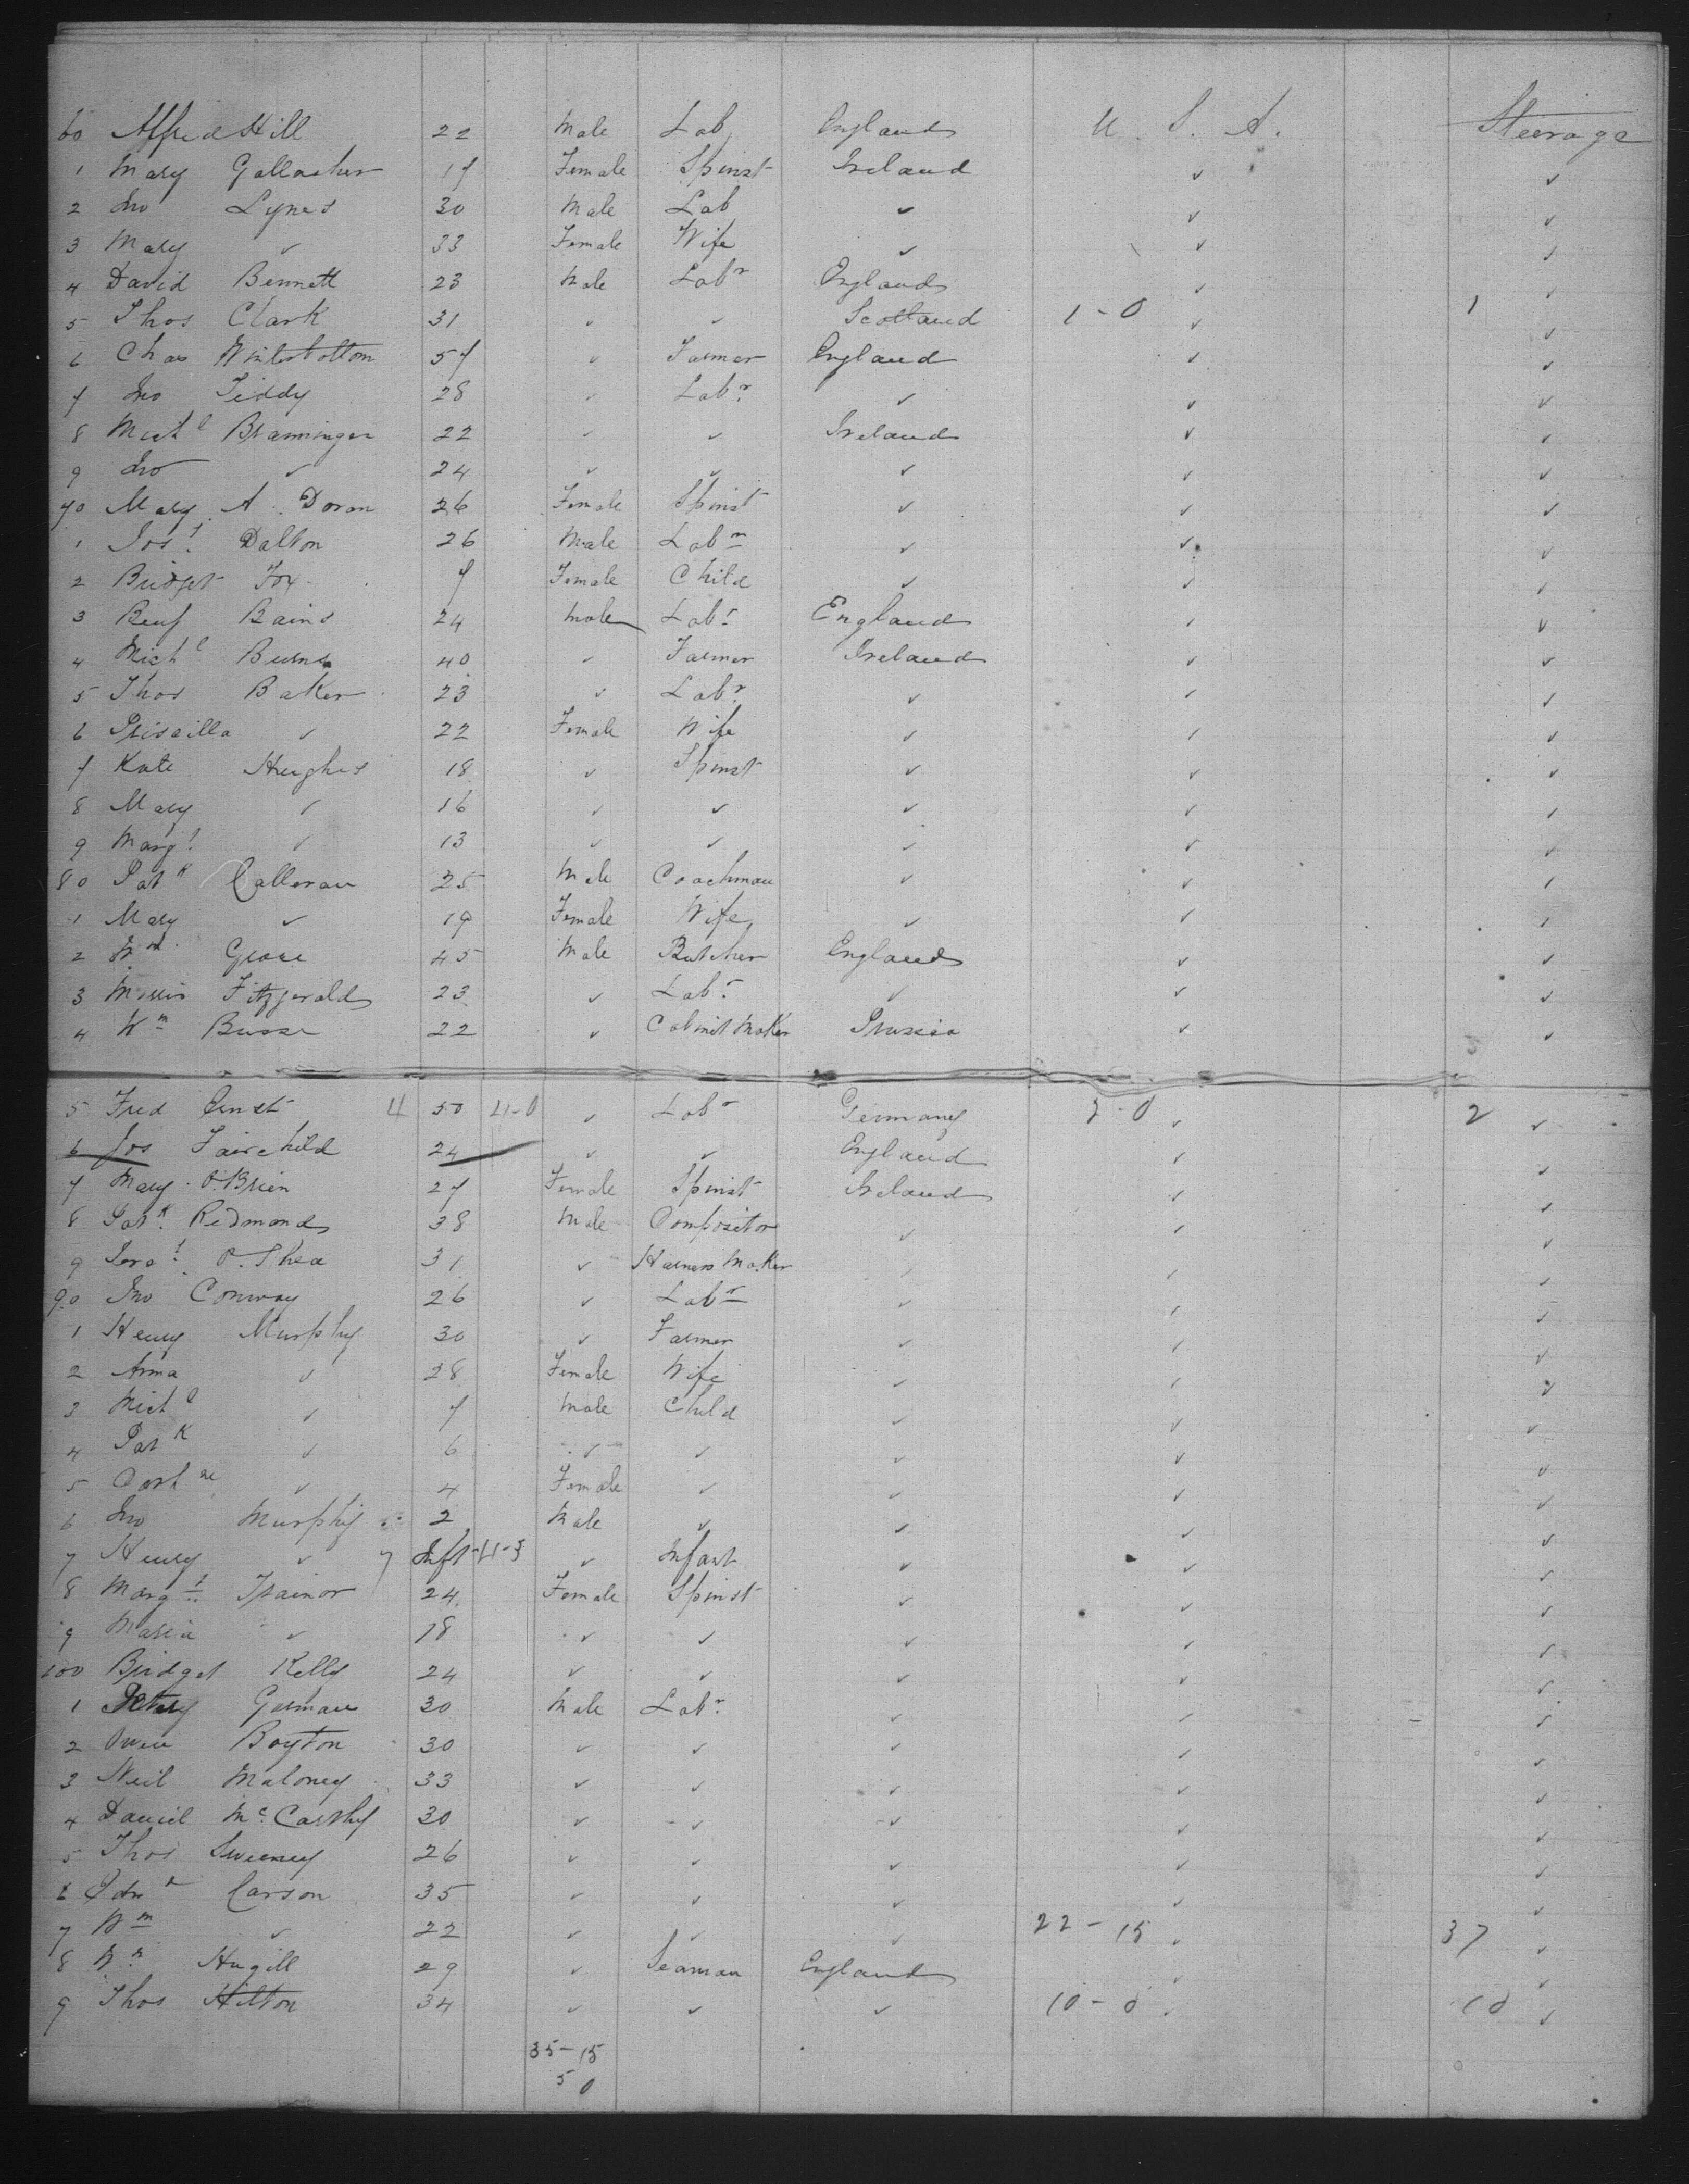 60 Alfred Hill 22 Male Lab England U. S. A. Steerage
1 Mary Gallacher 17 Female Spinst Ireland ✓ ✓
2 Jno Lynes 30 Male Lab ✓ ✓ ✓
3 Mary ✓ 33 Female Wife ✓ ✓ ✓
4 David Bennett 23 Male Labr England ✓ ✓
5 Thos Clark 31 ✓ ✓ Scotland 1-0 ✓ 1 ✓
6 Chas Winterbottom 57 ✓ Farmer England ✓ ✓
7 Jno Tiddy 28 ✓ Labr ✓ ✓ ✓
8 Michl Branningan 22 ✓ ✓ Ireland ✓ ✓
9 Jno ✓ 24 ✓ ✓ ✓ ✓ ✓
70 Mary A. Doran 26 Female Spinst ✓ ✓ ✓
1 Dalton 26 Male Labr ✓ ✓ ✓
2 Bridget Fox 7 Female Child ✓ ✓ ✓
3 Benj Bains 24 Male Labr England ✓ ✓
4 Michl Burns 40 ✓ Farmer Ireland ✓ ✓
5 Thos Baker 23 ✓ Labr ✓ ✓ ✓
6 Priscilla ✓ 22 Female Wife ✓ ✓ ✓
7 Kate Hughes 18 ✓ Spinst ✓ ✓ ✓
8 Mary ✓ 16 ✓ ✓ ✓ ✓ ✓
9 Margt ✓ 13 ✓ ✓ ✓ ✓ ✓
80 Patk Calleran 25 Male Coachman ✓ ✓ ✓
1 Mary ✓ 19 Female Wife ✓ ✓ ✓
2 Wm 45 Male Butcher England ✓ ✓
3 Fitzgerald 23 ✓ Labr ✓ ✓ ✓
4 Wm Busse 22 ✓ Cabinet Maker Prussia ✓ ✓
5 Fred Ernst 4 50 4-0 ✓ Labr Germany 2-0 ✓ 2 ✓
6 Jos Fairchild 24 ✓ ✓ England ✓ ✓
7 Mary O'Brien 27 Female Spinst Ireland ✓ ✓
8 Patk Redmond 38 Male Compositor ✓ ✓ ✓
9 O'Shea 31 ✓ Harness Maker ✓ ✓ ✓
90 Jno Conway 26 ✓ Labr ✓ ✓ ✓
1 Henry Murphy 30 ✓ Farmer ✓ ✓ ✓
2 Anna ✓ 28 Female Wife ✓ ✓ ✓
3 Michl ✓ 7 Male Child ✓ ✓ ✓
4 Patk ✓ 6 ✓ ✓ ✓ ✓
5 Cathne ✓ 4 Female ✓ ✓ ✓ ✓
6 Jno Murphy 2 Male ✓ ✓ ✓ ✓
7 Henry ✓ 7 Inft 4-3 ✓ Infant ✓ ✓ ✓
8 Margt Trainor 24 Female Spinst ✓ ✓ ✓
9 Maria ✓ 18 ✓ ✓ ✓ ✓ ✓
100 Bridget Kelly 24 ✓ ✓ ✓ ✓ ✓
1 German 30 Male Labr ✓ ✓ ✓
2 Owen Boyton 30 ✓ ✓ ✓ ✓ ✓
3 Neil Maloney 33 ✓ ✓ ✓ ✓ ✓
4 Daniel McCarthy 30 ✓ ✓ ✓ ✓ ✓
5 Thos Sweeney 26 ✓ ✓ ✓ ✓ ✓
6 Edwd Carson 35 ✓ ✓ ✓ ✓ ✓
7 Wm ✓ 22 ✓ ✓ ✓ 22-15 ✓ 37 ✓
8 Wm Hugill 29 ✓ Seaman England ✓ ✓
9 Thos Hilton 34 ✓ ✓ ✓ 10-0 ✓ 10 ✓
35-15
5 0